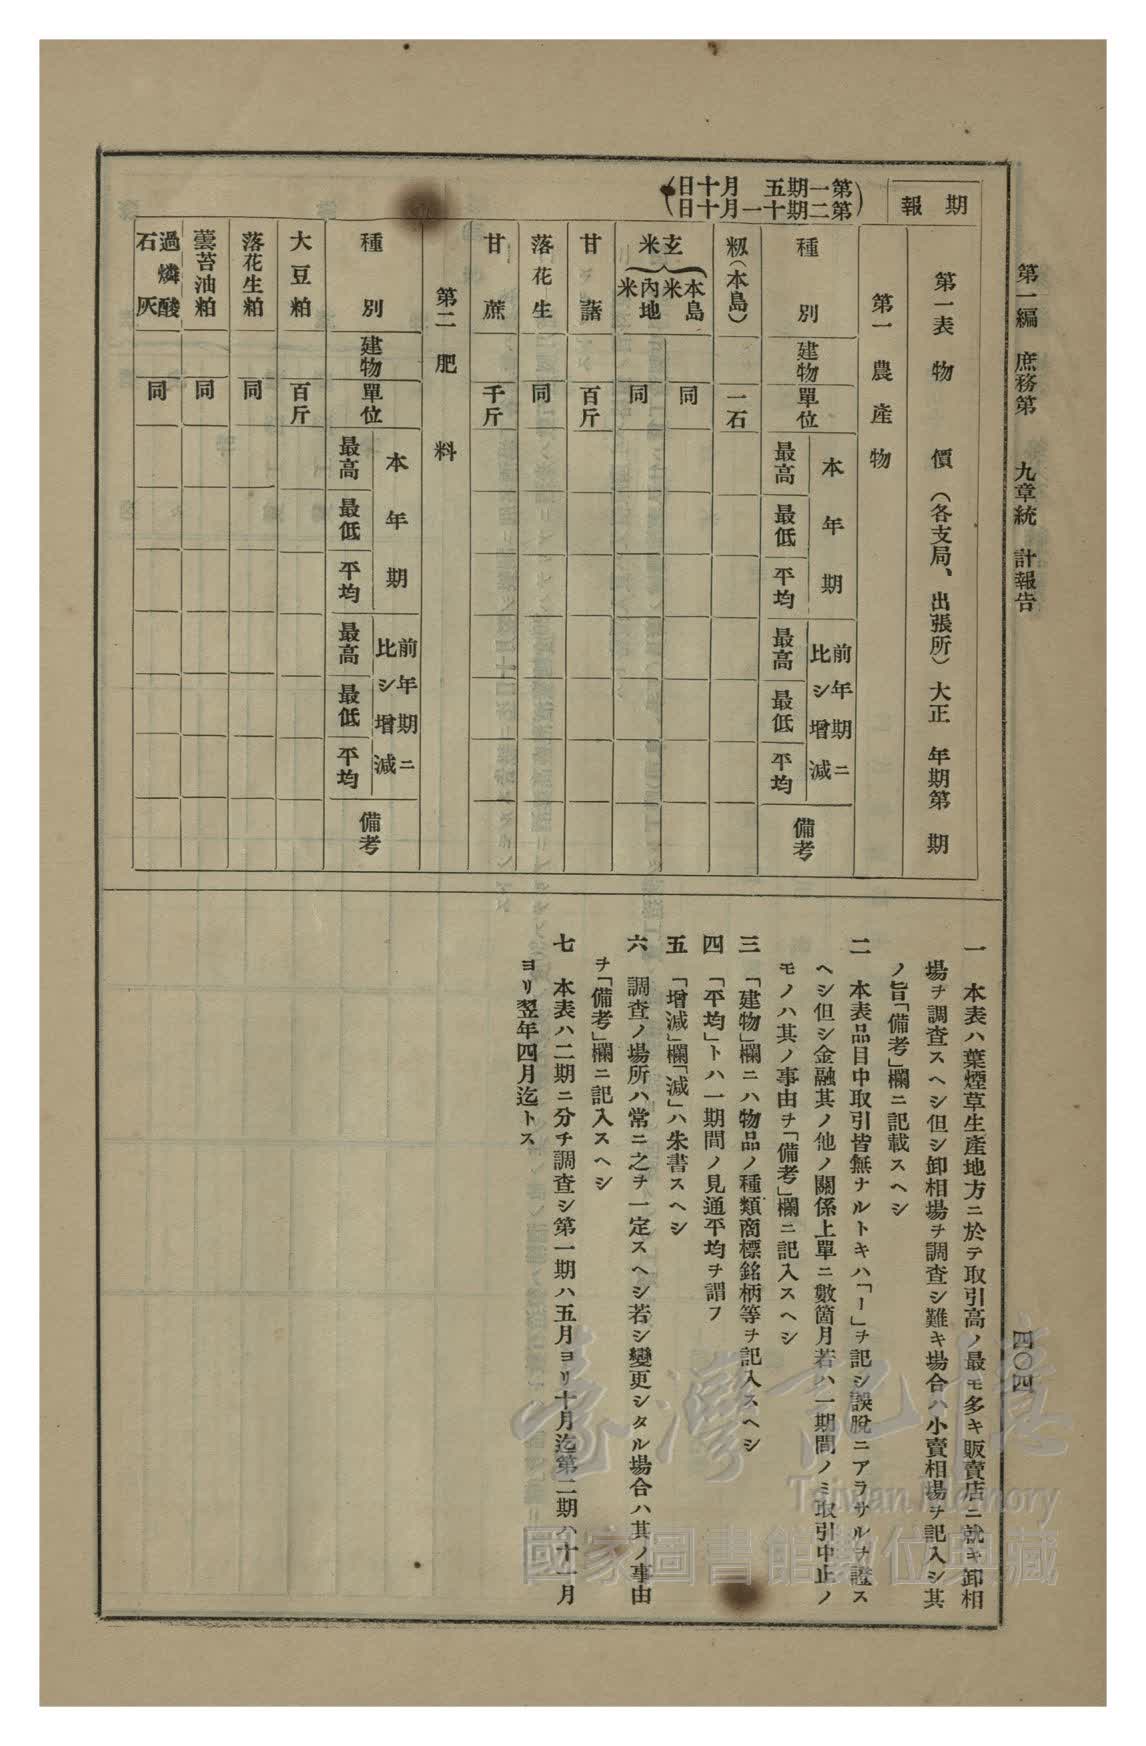 第一編　庶務第　九章統　計報告
四〇四
期報
第一期五月十日
第二期十一月十日
第一表　物　價（各支局、出張所）大正　年期第　期
第一　農產物
種別　建物　單位　本年期　最高　最低　平均　前年期ニ比シ增減　最高　最低　平均　備考
籾（本島）　一石
玄米　本島米　同
內地米　同
甘藷　百斤
落花生　同
甘蔗　千斤
第二　肥料
種別　建物　單位　本年期　最高　最低　平均　前年期ニ比シ增減　最高　最低　平均　備考
大豆粕　百斤
落花生粕　同
蕓苔油粕　同
過燐酸石灰　同
一　本表ハ葉煙草生產地方ニ於テ取引高ノ最モ多キ販賣店ニ就キ卸相
場ヲ調査スヘシ但シ卸相場ヲ調査シ難キ場合ハ小賣相場ヲ記入シ其
ノ旨「備考」欄ニ記載スヘシ
二　本表品目中取引皆無ナルトキハ「ー」ヲ記シ誤脫ニアラサルヲ證ス
ヘシ但シ金融其ノ他ノ關係上單ニ數箇月若ハ一期間ノミ取引中止ノ
モノハ其ノ事由ヲ「備考」欄ニ記入スヘシ
三　「建物」欄ニハ物品ノ種類商標銘柄等ヲ記入スヘシ
四　「平均」トハ一期間ノ見通平均ヲ謂フ
五　「增減」欄「減」ハ朱書スヘシ
六　調査ノ場所ハ常ニ之ヲ一定スヘシ若シ變更シタル場合ハ其ノ事由
ヲ「備考」欄ニ記入スヘシ
七　本表ハ二期ニ分チ調査シ第一期ハ五月ヨリ十月迄第二期ハ十一月
ヨリ翌年四月迄トス
臺灣記憶
Taiwan Memory
國家圖書館數位典藏